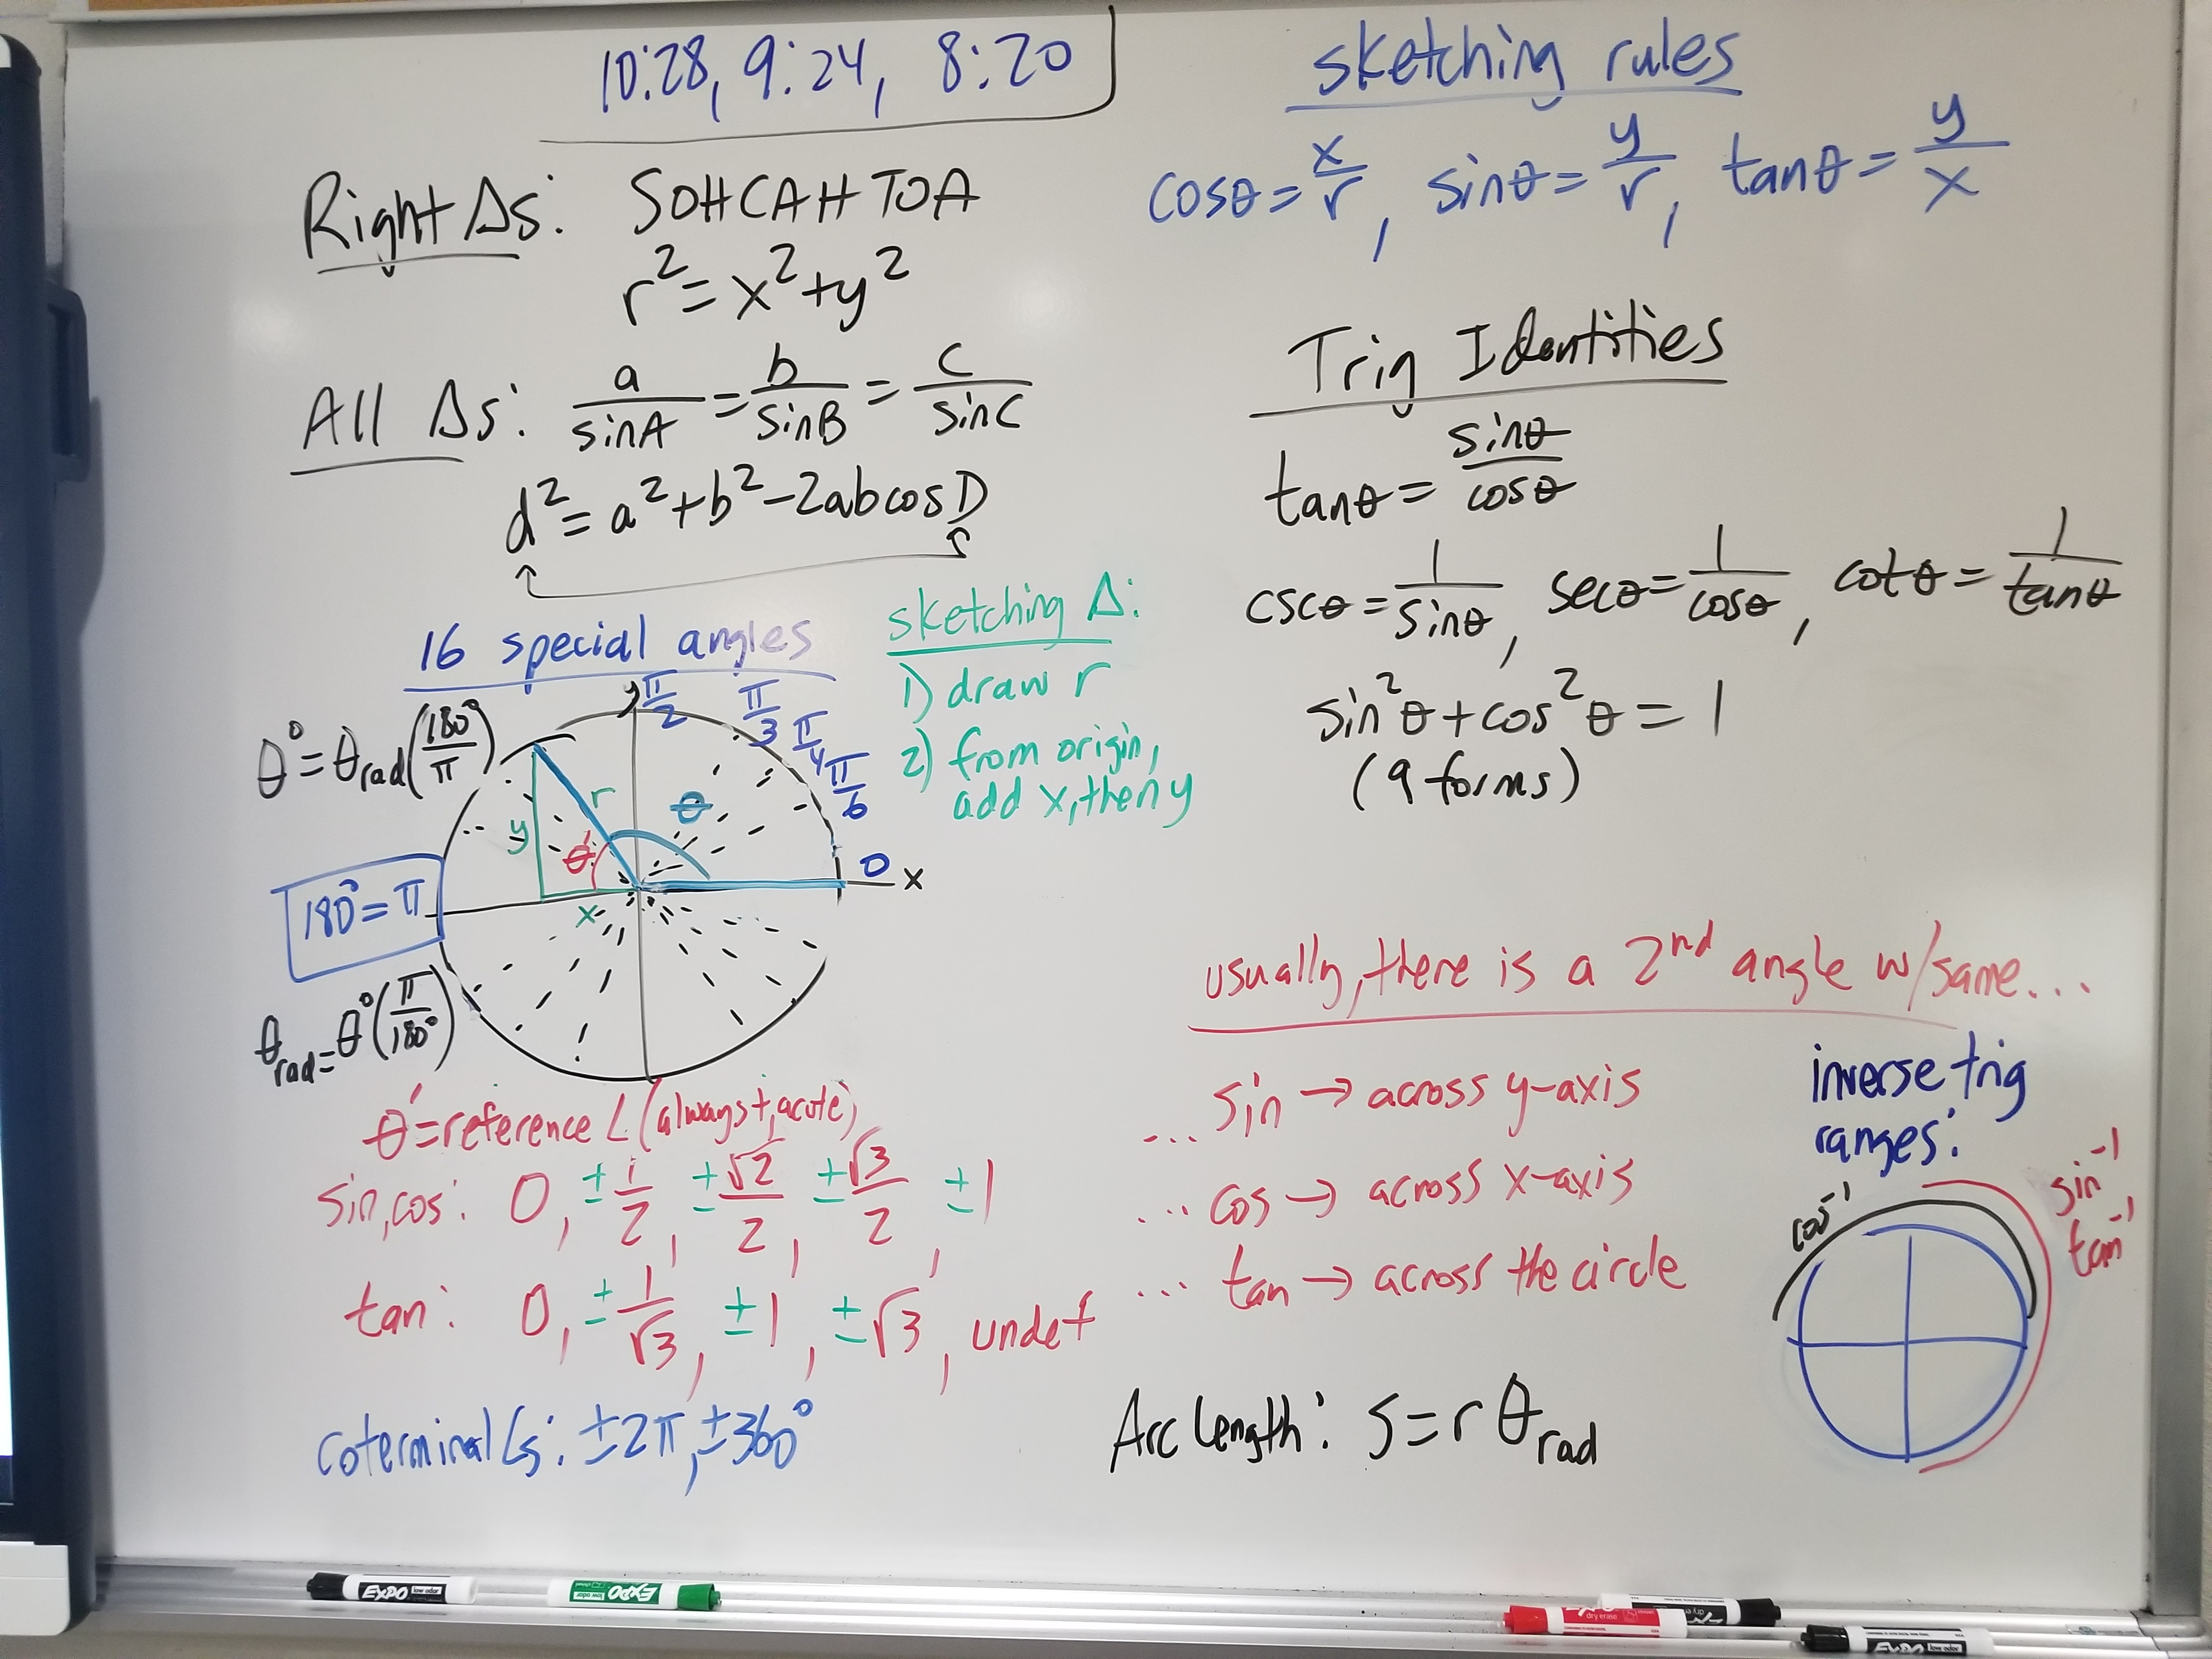 10:28, 9:24, 8:20
Right Δs: SOHCAHTOA
r² = x² + y²
All Δs: a/sinA = b/sinB = c/sinC
d² = a² + b² - 2ab cos D
16 special angles
y π/2 π/3 π/4 π/6 0 x
θ° = θrad (180°/π)
r θ
y θ'
x
180° = π
θrad = θ° (π/180°)
sketching Δ:
1) draw r
2) from origin,
add x, then y
θ' = reference ∠ (always +, acute)
sin, cos: 0, ± 1/2, ± √2/2, ± √3/2, ± 1
tan: 0, ± 1/√3, ± 1, ± √3, undef
coterminal ∠s: ±2π, ±360°
sketching rules
cosθ = x/r, sinθ = y/r, tanθ = y/x
Trig Identities
tanθ = sinθ/cosθ
cscθ = 1/sinθ, secθ = 1/cosθ, cotθ = 1/tanθ
sin²θ + cos²θ = 1
(9 forms)
usually, there is a 2nd angle w/same...
... sin → across y-axis
... cos → across x-axis
... tan → across the circle
inverse trig
ranges:
cos⁻¹
sin⁻¹
tan⁻¹
Arc Length: s = r θrad
EXPO low odor
EXPO low odor
dry erase
EXPO low odor